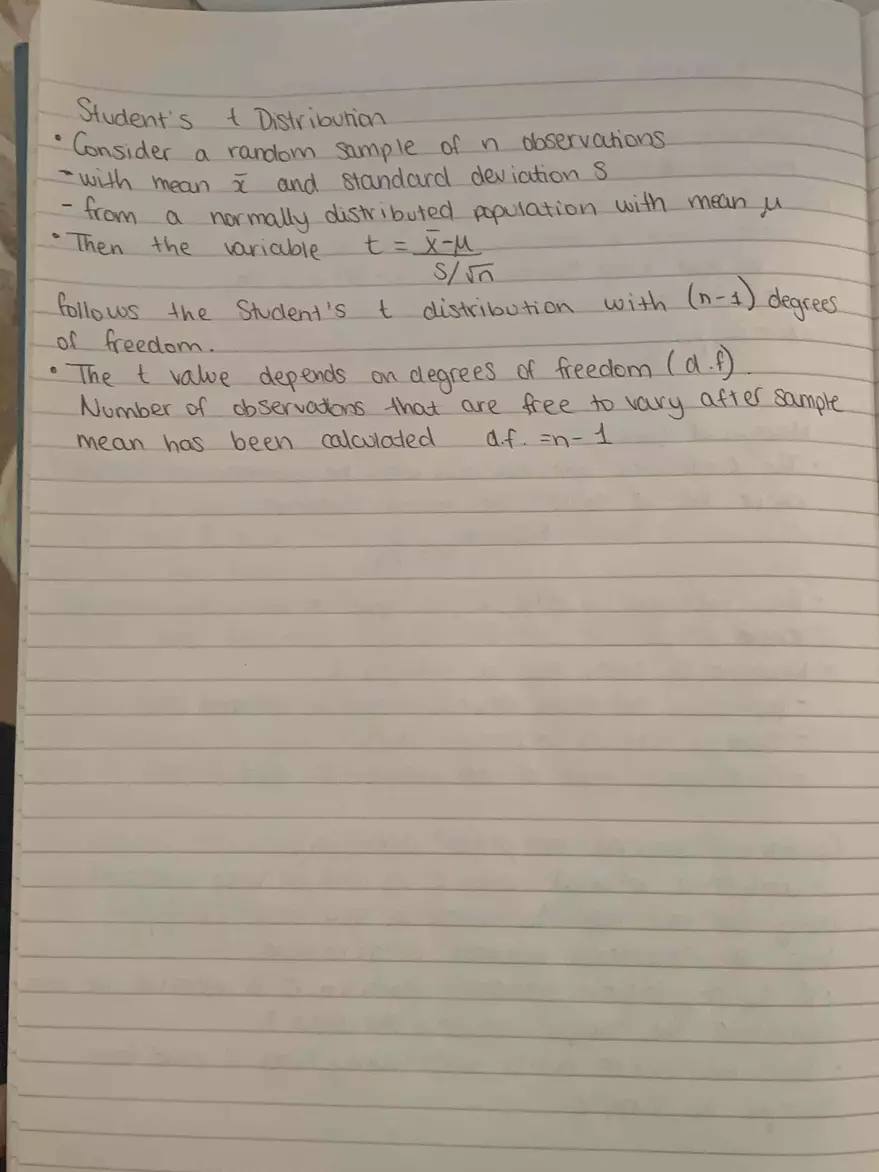 Student's t Distribution
• Consider a random sample of n observations
- with mean x̄ and standard deviation s
- from a normally distributed population with mean μ
• Then the variable t = x̄-μ
s/√n
follows the Student's t distribution with (n-1) degrees
of freedom.
• The t value depends on degrees of freedom (d.f).
Number of observations that are free to vary after sample
mean has been calculated d.f. =n-1